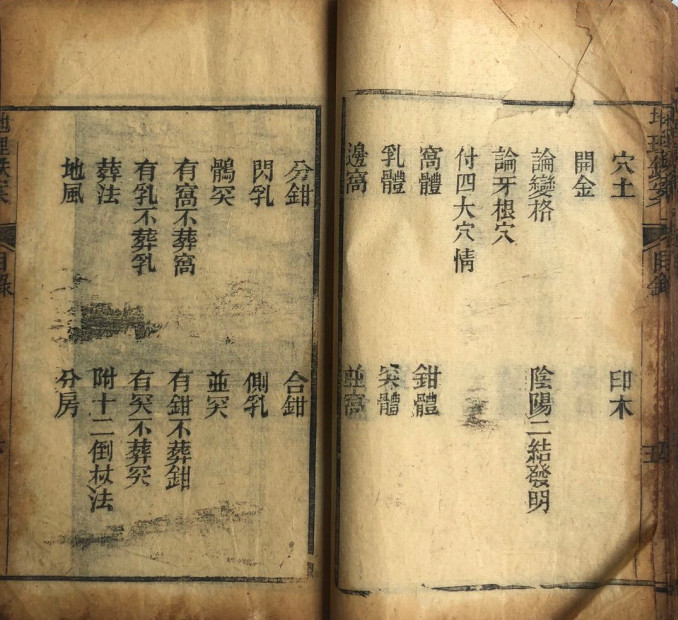 穴土
印木
開金
論變格
陰陽二結發明
論牙根穴
付四大穴情
窩體
鉗體
乳體
突體
邊窩
並窩
分鉗
合鉗
閃乳
側乳
鶻突
並突
有窩不葬窩
有鉗不葬鉗
有乳不葬乳
有突不葬突
葬法
附十二倒杖法
地風
分房
目錄